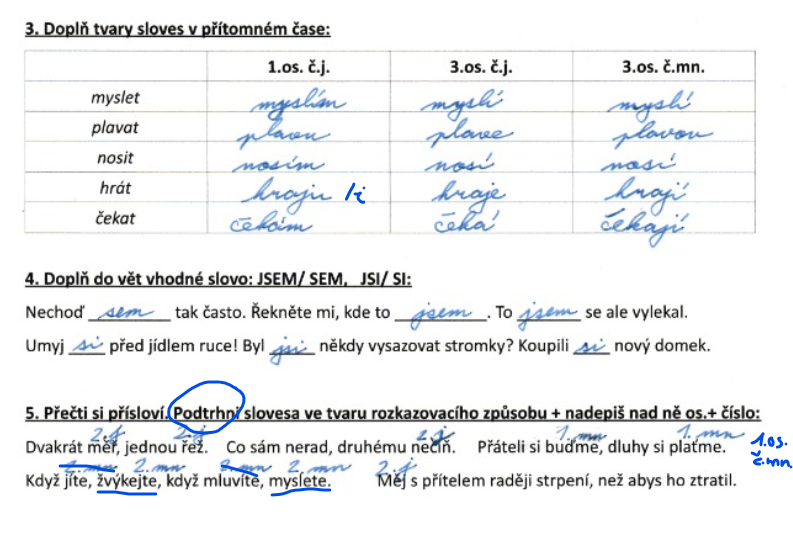 3. Doplň tvary sloves v přítomném čase:
1.os. č.j. 3.os. č.j. 3.os. č.mn.
myslet myslím myslí myslí
plavat plavu plave plavou
nosit nosím nosí nosí
hrát hraju /i hraje hrají
čekat čekám čeká čekají
4. Doplň do vět vhodné slovo: JSEM/ SEM, JSI/ SI:
Nechoď sem tak často. Řekněte mi, kde to jsem. To jsem se ale vylekal.
Umyj si před jídlem ruce! Byl jsi někdy vysazovat stromky? Koupili si nový domek.
5. Přečti si přísloví. Podtrhni slovesa ve tvaru rozkazovacího způsobu + nadepiš nad ně os.+ číslo:
2.j 2.j 2.j 1.mn 1.mn 1.os.
Dvakrát měř, jednou řež. Co sám nerad, druhému nečiň. Přáteli si buďme, dluhy si plaťme. č.mn.
2.mn 2.mn 2.mn 2.mn 2.j
Když jíte, žvýkejte, když mluvíte, myslete. Měj s přítelem raději strpení, než abys ho ztratil.